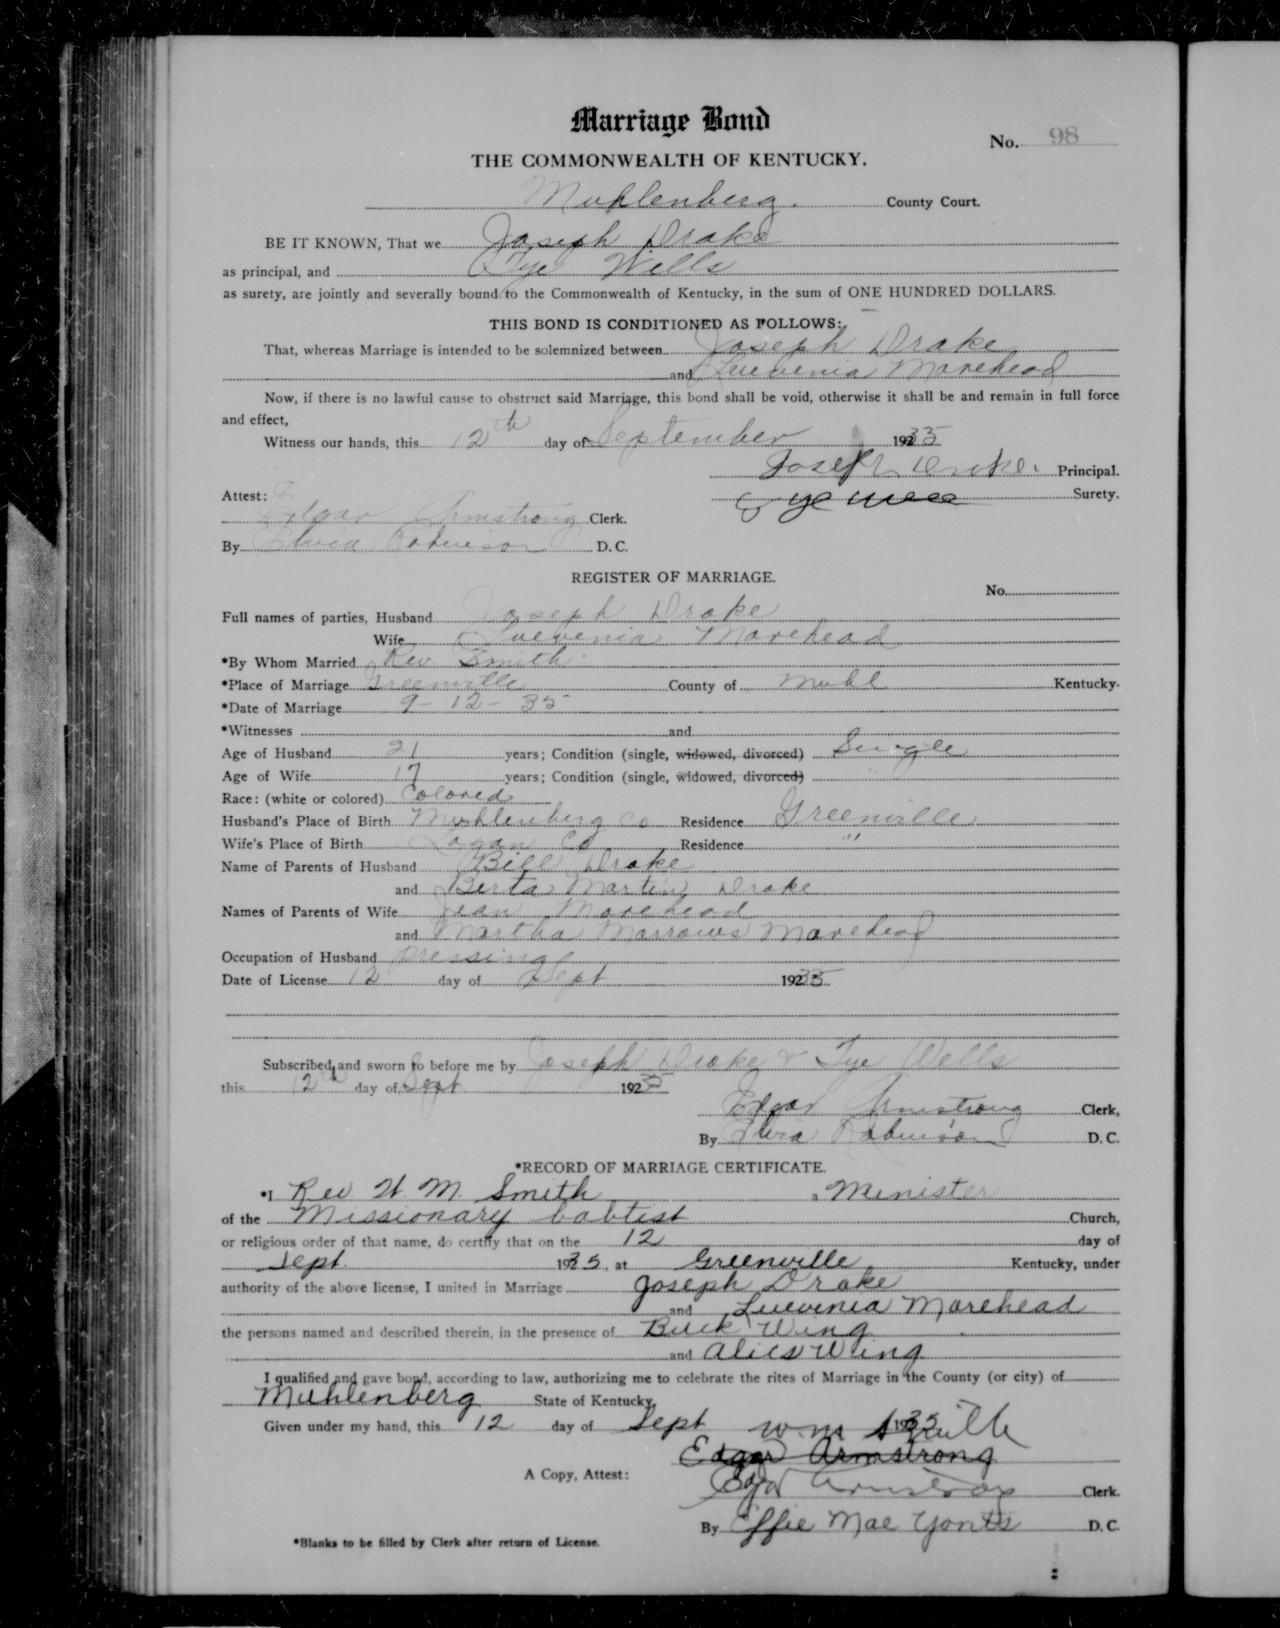 Marriage Bond
No. 98
THE COMMONWEALTH OF KENTUCKY.
Muhlenberg. County Court.
BE IT KNOWN, That we Joseph Drake
as principal, and Tye Wells
as surety, are jointly and severally bound to the Commonwealth of Kentucky, in the sum of ONE HUNDRED DOLLARS.
THIS BOND IS CONDITIONED AS FOLLOWS:
That, whereas Marriage is intended to be solemnized between Joseph Drake
and Luevenia Morehead
Now, if there is no lawful cause to obstruct said Marriage, this bond shall be void, otherwise it shall be and remain in full force
and effect,
Witness our hands, this 12th day of September 1935
Joseph Drake. Principal.
Attest: Surety.
Edgar Armstrong Clerk.
By Elvica Robinson D. C.
REGISTER OF MARRIAGE.
No.
Full names of parties, Husband Joseph Drake
Wife Luevenia Morehead
*By Whom Married Rev. Smith
*Place of Marriage Greenville County of Muhl Kentucky.
*Date of Marriage 9-12-35
*Witnesses and
Age of Husband 21 years; Condition (single, widowed, divorced) Single
Age of Wife 17 years; Condition (single, widowed, divorced) "
Race: (white or colored) Colored
Husband's Place of Birth Muhlenberg Co Residence Greenville
Wife's Place of Birth Logan Co Residence "
Name of Parents of Husband Bill Drake
and Berta Martin Drake
Names of Parents of Wife Jean Morehead
and Martha Marrows Morehead
Occupation of Husband pressing
Date of License 12 day of Sept 1935
Subscribed and sworn to before me by Joseph Drake & Tye Wells
this 12th day of Sept 1935
Edgar Armstrong Clerk,
By Elvica Robinson D. C.
*RECORD OF MARRIAGE CERTIFICATE.
*I Rev W. M. Smith, a Minister
of the Missionary babtist Church,
or religious order of that name, do certify that on the 12 day of
Sept. 1935, at Greenville Kentucky, under
authority of the above license, I united in Marriage Joseph Drake
and Luevenia Morehead
the persons named and described therein, in the presence of Buck Wing
and Alics Wing
I qualified and gave bond, according to law, authorizing me to celebrate the rites of Marriage in the County (or city) of
Muhlenberg State of Kentucky.
Given under my hand, this 12 day of Sept 1935
Wm Smith
Edgar Armstrong
A Copy, Attest:
Edgar Armstrong Clerk.
By Effie Mae Yonts D. C.
*Blanks to be filled by Clerk after return of License.